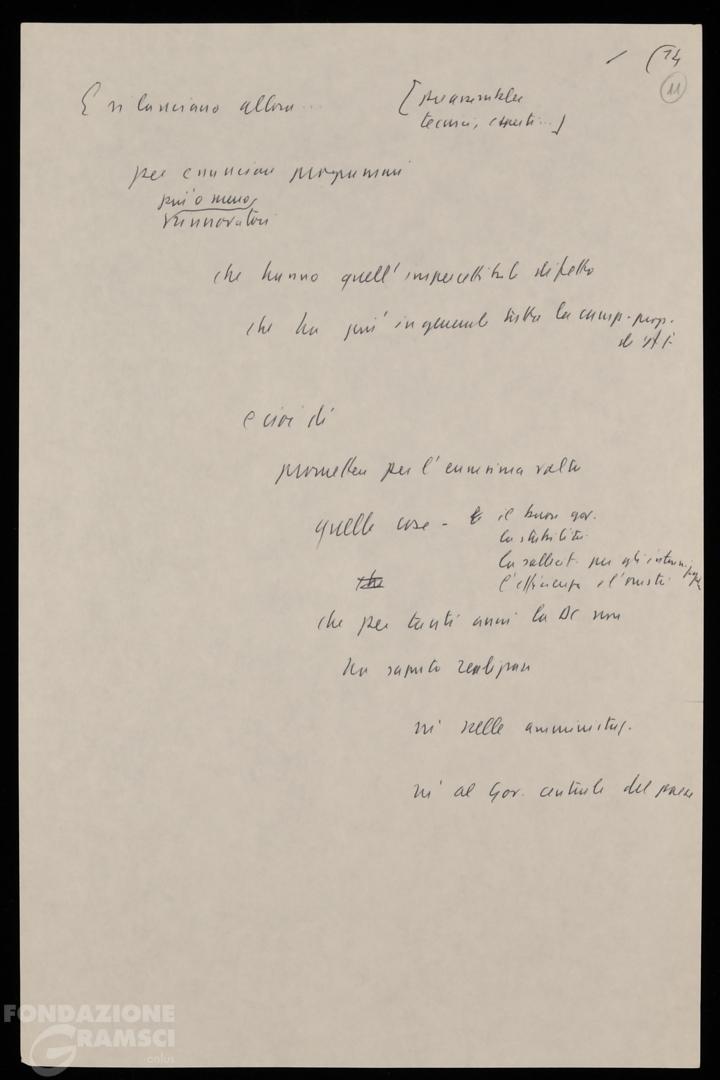 14
11
E si lanciano allora...
[preassemblee
tecnici, esperti...]
per enunciare programmi
più o meno
rinnovatori
che hanno quell'impercettibile difetto
che ha più in generale tutta la camp. prop.
e cioè di
promettere per l'ennesima volta
quelle cose -
il buon gov.
la stabilità
la sollecit. per gli interessi
l'efficienza e l'onestà
che per tanti anni la DC non
ha saputo realizzare
nè nelle amministraz.
nè al Gov. centrale del paese
FONDAZIONE
GRAMSCI
onlus